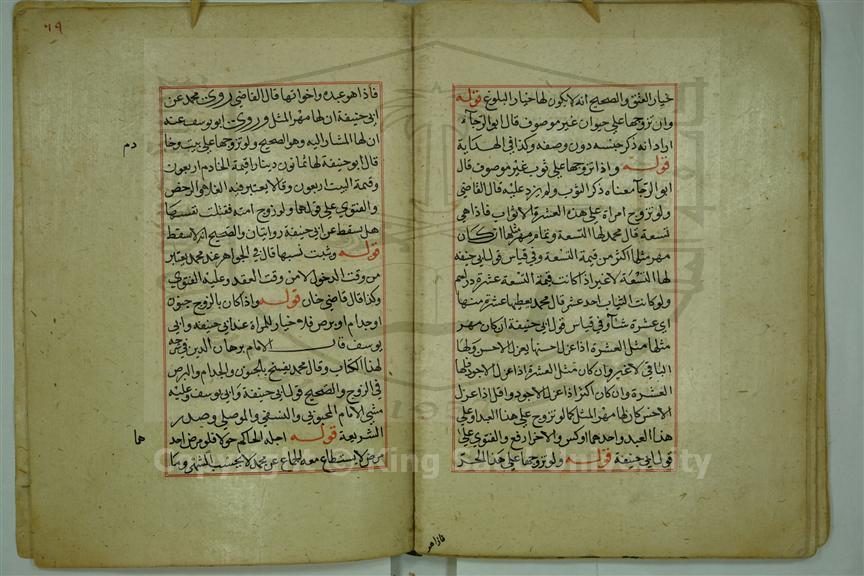 خيار العتق والصحيح انه لا يكون لها خيار البلوغ قوله
وان تزوجها على حيوان غير موصوف قال ابو الرجاء
اراد انه ذكر جنسه دون وصفه وكذا في الهداية
قوله واذا تزوجها على ثوب غير موصوف قال
ابو الرجاء معناه ذكر الثوب ولم يزد عليه قال القاضي
ولو تزوج امراة على هذه العشرة الاثواب فاذا هي
تسعة قال محمد لها التسعة وتمام مهر مثلها ان كان
مهر مثلها اكثر من قيمة التسعة وفي قياس قول ابي حنيفة
لها التسعة لا غير اذا كانت قيمة التسعة عشرة دراهم
ولو كانت الثياب احد عشر قال محمد يعطيها عشرة منها
اي عشرة شاء وفي قياس قول ابي حنيفة ان كان مهر
مثلها مثل العشرة اذا عزل اخسها يعزل الاخس ولها
الباقي لا غير وان كان مثل العشرة اذا عزل الاجود فلها
العشرة وان كان اكثر اذا عزل الاجود واقل اذا عزل
الاخس كان لها مهر المثل كما لو تزوج على هذا العبد او على
هذا العبد واحدهما اوكس والاخر ارفع والفتوى على
قول ابي حنيفة قوله ولو تزوجها على هذا الحر
فاذا هو
٦٩
فاذا هو عبده واخواتها قال القاضي روى محمد عن
ابي حنيفة ان لها مهر المثل وروى ابو يوسف عنه
ان لها المشار اليه وهو الصحيح ولو تزوجها على بيت وخا
دم
قال ابو حنيفة لها ثمانون دينارا قيمة الخادم اربعون
وقيمة البيت اربعون وقالا يعتبر فيه الغلاء والرخص
والفتوى على قولهما ولو زوج امته فقتلت نفسها
هل يسقط عن ابي حنيفة روايتان والصحيح انه لا يسقط
قوله وثبت نسبها قال في الجواهر عند محمد يعتبر
من وقت الدخول لا من وقت العقد وعليه الفتوى
وكذا قال قاضي خان قوله واذا كان بالزوج جنون
او جذام او برص فلا خيار للمراة عند ابي حنيفة وابي
يوسف قال الامام برهان الدين في شرحه
لهذا الكتاب وقال محمد يفسخ بالجنون والجذام والبرص
في الزوج والصحيح قول ابي حنيفة وابي يوسف وعليه
مشى الامام المحبوبي والنسفي والموصلي وصدر
الشريعة قوله اجله الحاكم حولا فلو مرض احد
هما
مرض لا يستطاع معه الجماع عن محمد لا يحسب الشهر وما
Copyright © King Saud University
1957